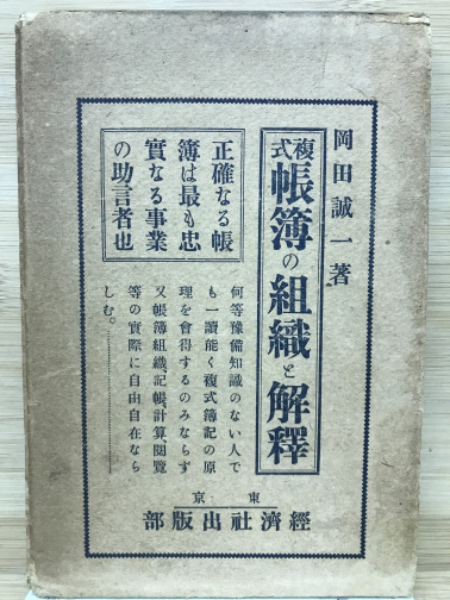 岡田誠一著
複式
帳簿の組織と解釋
正確なる帳
簿は最も忠
實なる事業
の助言者也
何等豫備知識のない人で
も一讀能く複式簿記の原
理を會得するのみならず
又帳簿組織、記帳、計算、閲覽
等の實際に自由自在なら
しむ。
東京
經濟社出版部